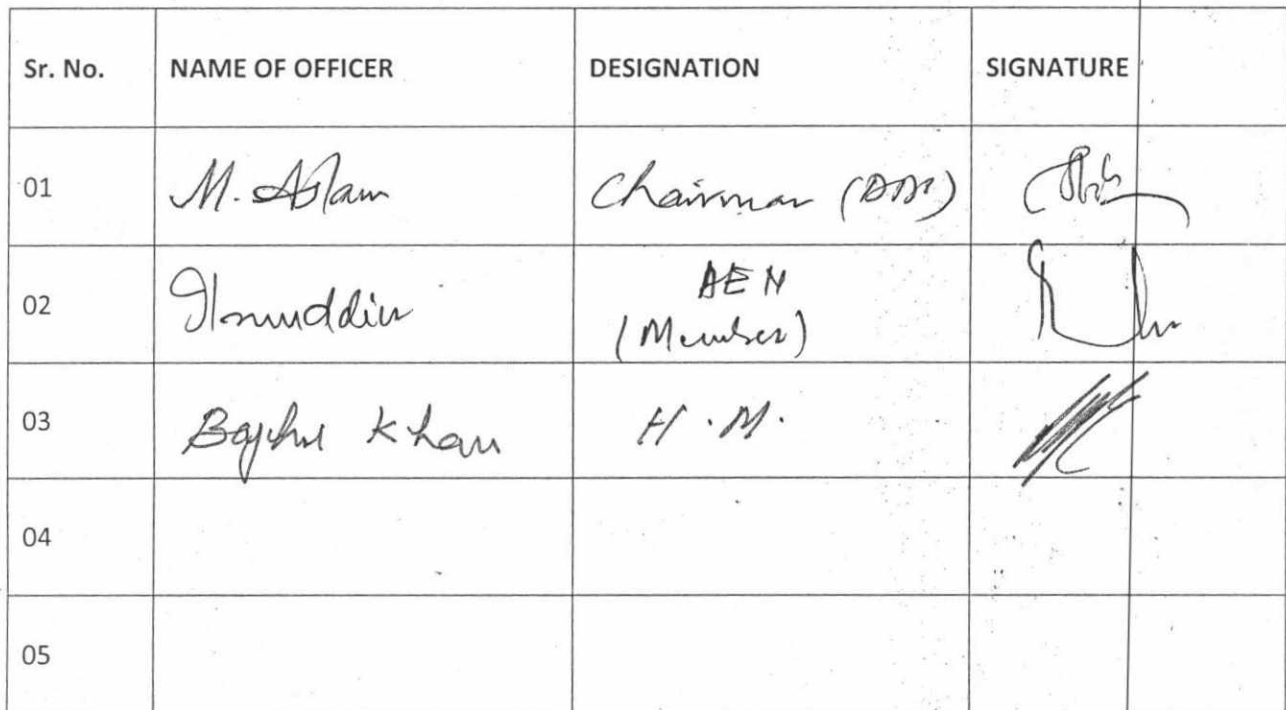 Sr. No. NAME OF OFFICER DESIGNATION SIGNATURE
01 M. Aslam Chairman
02 AEN
(Member)
03 Khan H.M.
04
05